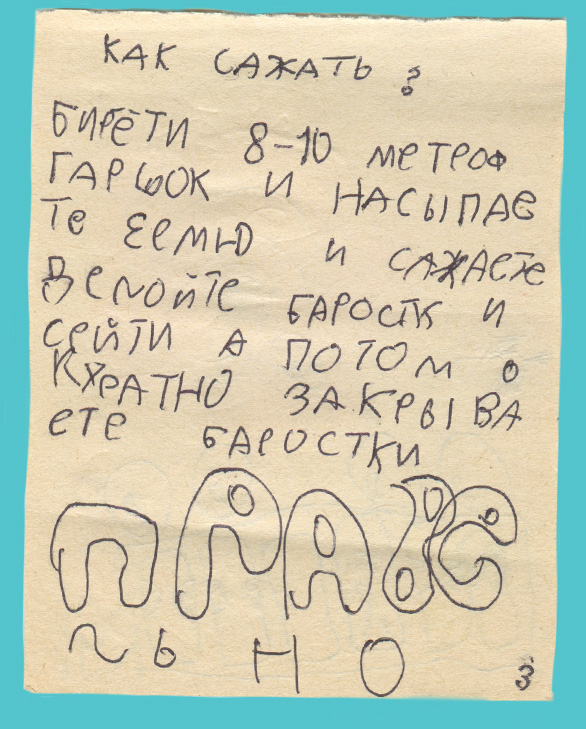 КАК САЖАТЬ?
БИРЁТИ 8-10 МЕТРОФ
ГАРШОК И НАСЫПАЕ
ТЕ ЕЕМЛЮ И САЖАЕТЕ
ДЕЛОЙТЕ БАРОСТК И
СЕЙТИ А ПОТОМ О
КУРАТНО ЗАКРЫВА
ЕТЕ БАРОСТКИ
ПРАВЕ
ЛЬНО
3